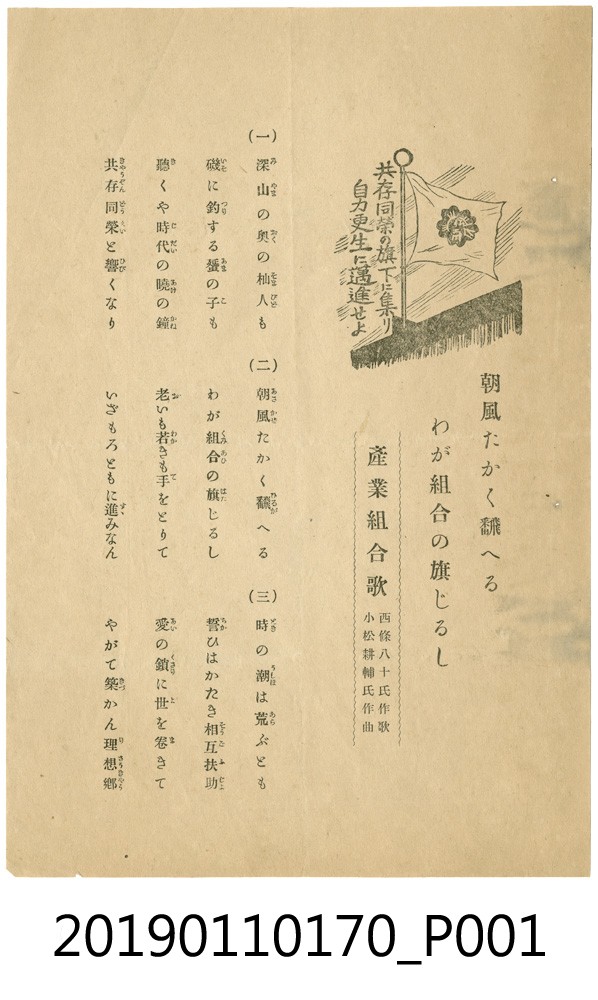 朝風たかく飜へる
わが組合の旗じるし
共存同榮の旗下に集り
自力更生に邁進せよ
產業組合歌
西條八十氏作歌
小松耕輔氏作曲
(一)
深山の奥の杣人も
磯に釣する蜑の子も
聽くや時代の曉の鐘
共存同榮と響くなり
(二)
朝風たかく飜へる
わが組合の旗じるし
老いも若きも手をとりて
いざもろともに進みなん
(三)
時の潮は荒ぶとも
誓ひはかたき相互扶助
愛の鎖に世を卷きて
やがて築かん理想鄕
20190110170_P001